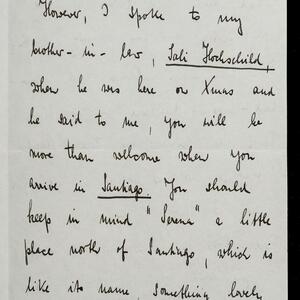 However, I spoke to my
brother-in-law, Sali Hochschild,
when he was here on Xmas and
he said to me, you will be
more than welcome when you
arrive in Santiago. You should
keep in mind "Serena" a little
place north of Santiago, which is
like its name, something lovely